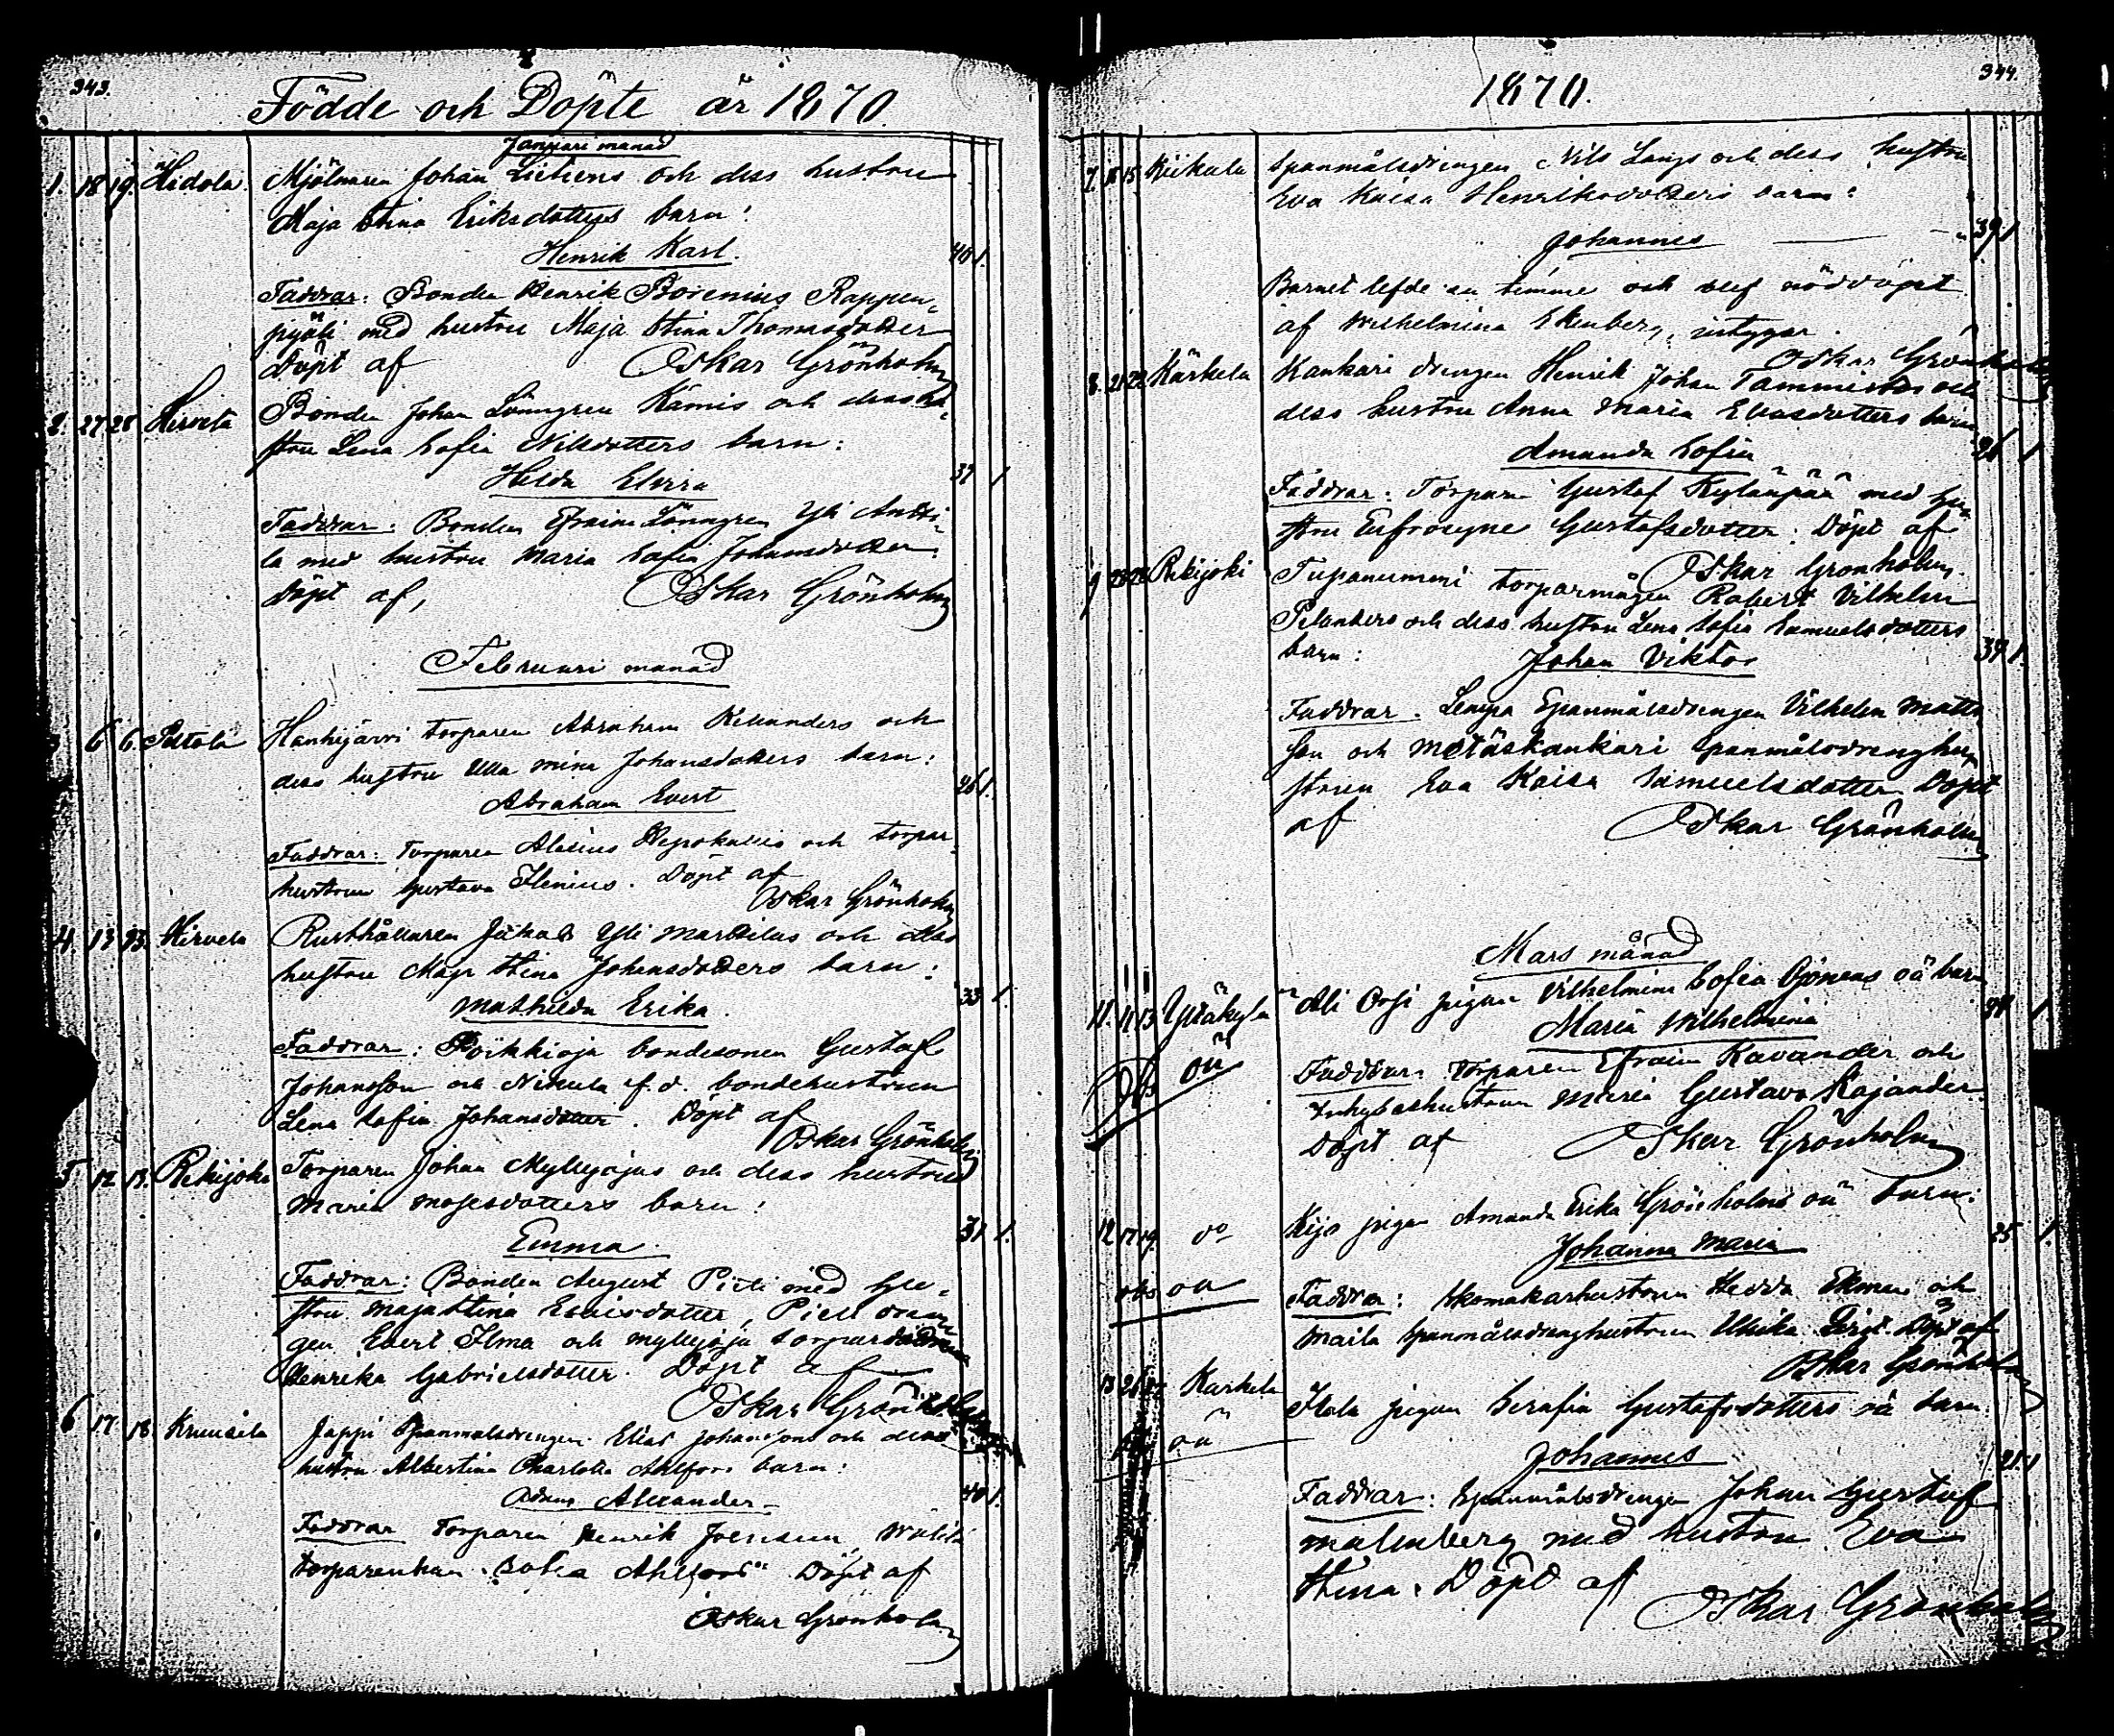 343.
Födde och Döpte år 1870.
Januari månad
1. 18 19. Hidola. Mjölnaren Johan Liliens och dess hustru
Maja Stina Eriksdotters barn:
Henrik Karl. 40 1.
Faddrar: Bonden Henrik Borenius Rappen-
pyöli med hustru Maja Stina Thomasdotter
Döpt af Oskar Grönholm
2. 27 28 Hirvelä Bonden Johan Lönngren Kämis och dess hu-
stru Lena Sofia Nilsdotters barn:
Hilda Elvira 37 1
Faddrar: Bonden Efraim Lönngren Yli Antti-
la med hustru Maria Sofia Johansdotter.
Döpt af, Oskar Grönholm
Februari månad
6 6 Hanhijärvi torparen Abraham och
dess hustru Ulla Mina Johansdotters barn:
Abraham Evert 26 1.
Faddrar: Torparen och torpar-
hustrun Gustava Flenius. Döpt af
Oskar Grönholm
4. 13 13. Hirvelä Rusthållaren Yli Markilas och dess
hustru Maja Stina Johansdotters barn:
Mathilda Erika. 33 1.
Faddrar: Poikkioja bondesonen Gustaf
Johansson och Nikula f.d. bondehustrun
Lena Sofia Johansdotter. Döpt af
Oskar Grönholm
5 12 13. Rekijoki Torparen Johan Myllyojas och dess hustru
Maria Mosesdotters barn:
Emma. 31 1.
Faddrar: Bonden August Pieli med hu-
stru Maja Stina dotter, Pieli drän-
gen Evert Ilma och Myllyoja
Henrika Gabrielsdotter. Döpt af
Oskar Grönholm
6 17. 18. Jappi Spanmålsdrengen Elias Johanssons och dess
hustru Albertina Charlotta Ahlfors barn:
Adam Alexander 40 1.
Faddrar Torparen Henrik
Sofia Ahlfors Döpt af
Oskar Grönholm
344.
1870.
7. 15 Kiikala Spanmålsdrengen Nils Längs och dess hustru
Eva Kaisa Henriksdotters barn:
Johannes 39 1
Barnet lefde en timme och blef nöddöpt
af Wilhelmina Ekenberg, intygar.
Oskar Grönholm
8. 21 22 Kärkelä Kankari drengen Henrik Johan Tammistos och
dess hustru Anna Maria Eliasdotters barn
Amanda Sofia 26 1
Faddrar: Torparen Gustaf Kylänpää med hu-
stru Eufrosyne Gustafsdotter. Döpt af
Oskar Grönholm.
9 28 28 Rekijoki Tupanummi torparmågen Robert Vilhelm
Pelanders och dess hustru Lena Sofia Samuelsdotters
barn: Johan Viktor 39 1.
Faddrar. Lempa Spanmålsdrengen Vilhelm Matts
son och Metäskankari spanmålsdrenghu-
strun Eva Kaisa Samuelsdotter. Döpt
af Oskar Grönholm
Mars månad
11. 11 13 Yltäkylä Ali Orsi pigan Vilhelmina Sofia oä barn
Maria Wilhelmina 1
oä
Obs
Faddrar. Torparen Efraim Kavander och
Inhyseshustrun Maria Gustava Kajander.
Döpt af Oskar Grönholm
12 17 19. do pigan Amanda Erika Grönholms oä barn:
Johanna Maria 25 1.
obs oä
Faddrar: Skomakarhustrun Hedda Ekman och
Maila Spanmålsdrenghustrun Ulrika Döpt af
Oskar Grönholm
13 26 27 Kärkelä Isola pigan Serafia Gustafsdotters oä barn:
Johannes 21 1
oä
Faddrar: Spanmålsdrengen Johan Gustaf
Malmberg med hustru Eva
Stina. Döpt af Oskar Grönholm